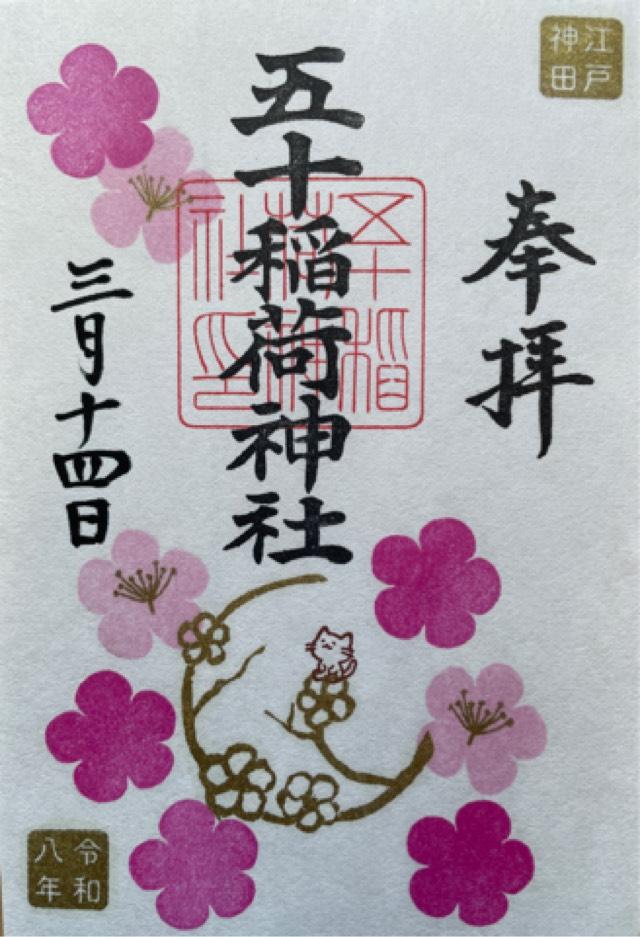 江戸
神田
奉拝
五十稲荷神社
五十稲
荷神
社
三月十四日
令和
八年